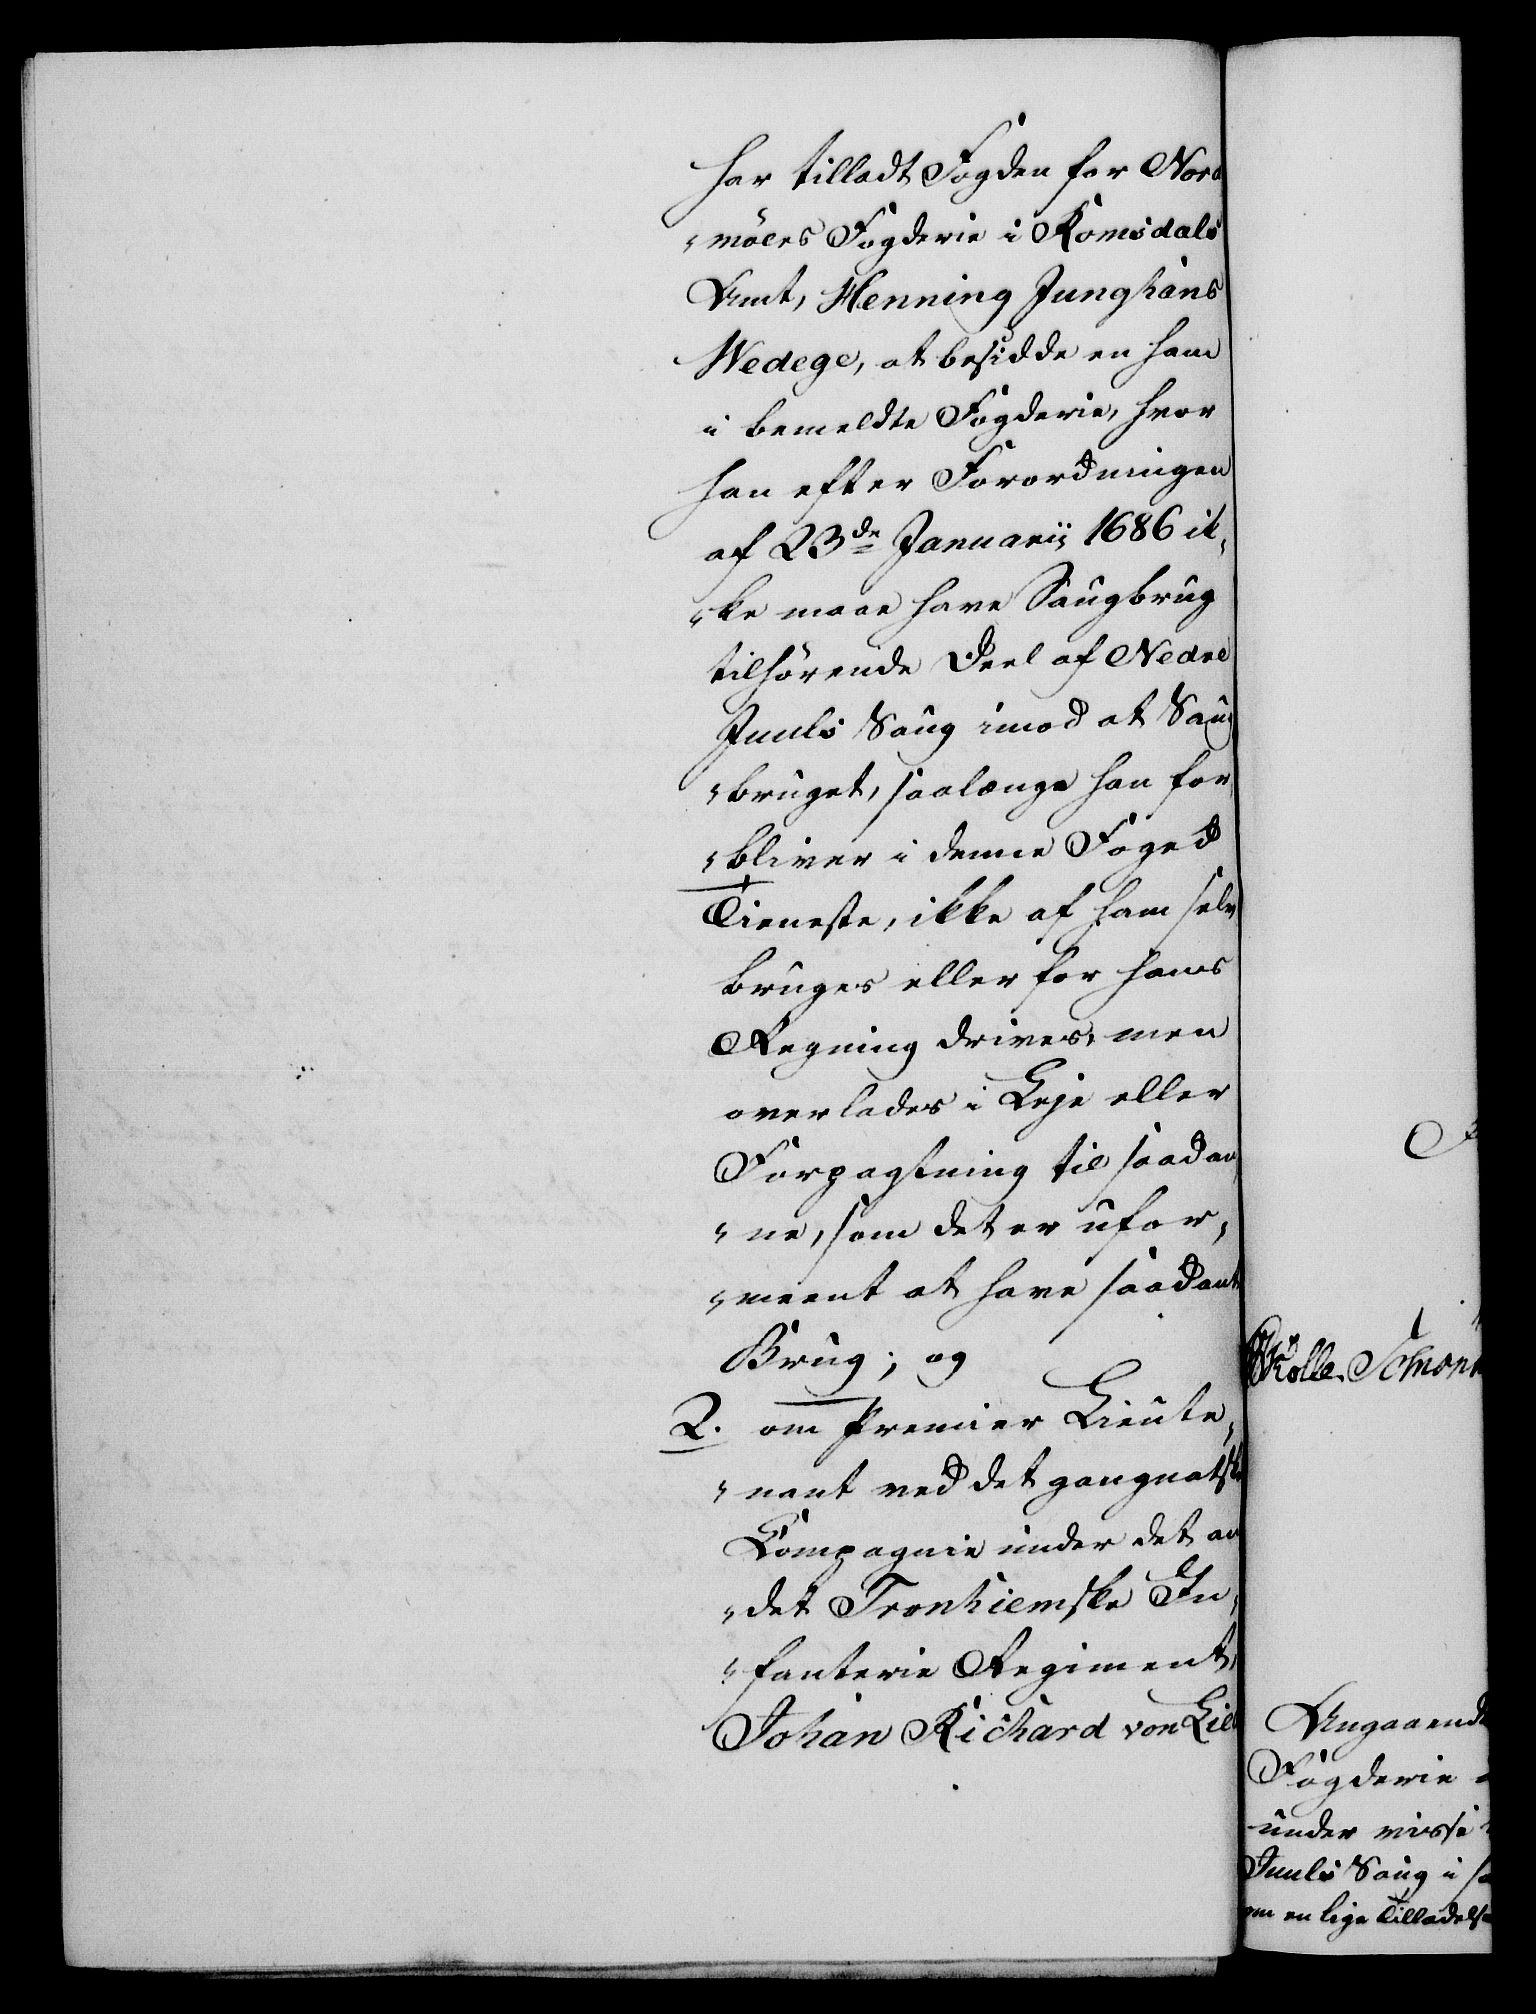 har tilladt Fogden for Nord
„møers Fogderie i Romsdals
Amt, Henning Junghans
Wedege, at besidde en ham
i bemeldte Fogderie, hvor
han efter Forordningen
af 23de Januarii 1686 ik„
„ke maae have Saugbrug
tilhørende Deel af Nedre
Juuls Saug imod at Saug
„bruget, saalænge han for
„bliver i denne Foged
Tieneste, ikke af ham selv
bruges eller for hans
Regning drives, men
overlades i Leje eller
Forpagtning til saadan
„ne, som det er ufor„
„meent at have saadant
Brug; og
2. om Premier Lieute„
„nant ved det gangnatske
Compagnie under det an
„det Tronhiemske In„
„fanterie Regiment,
Johan Richard von Lil
Kolle. Schmon
Angaaende
Fogderie
under visse
Juuls Saug i
om en lige Tilladelse